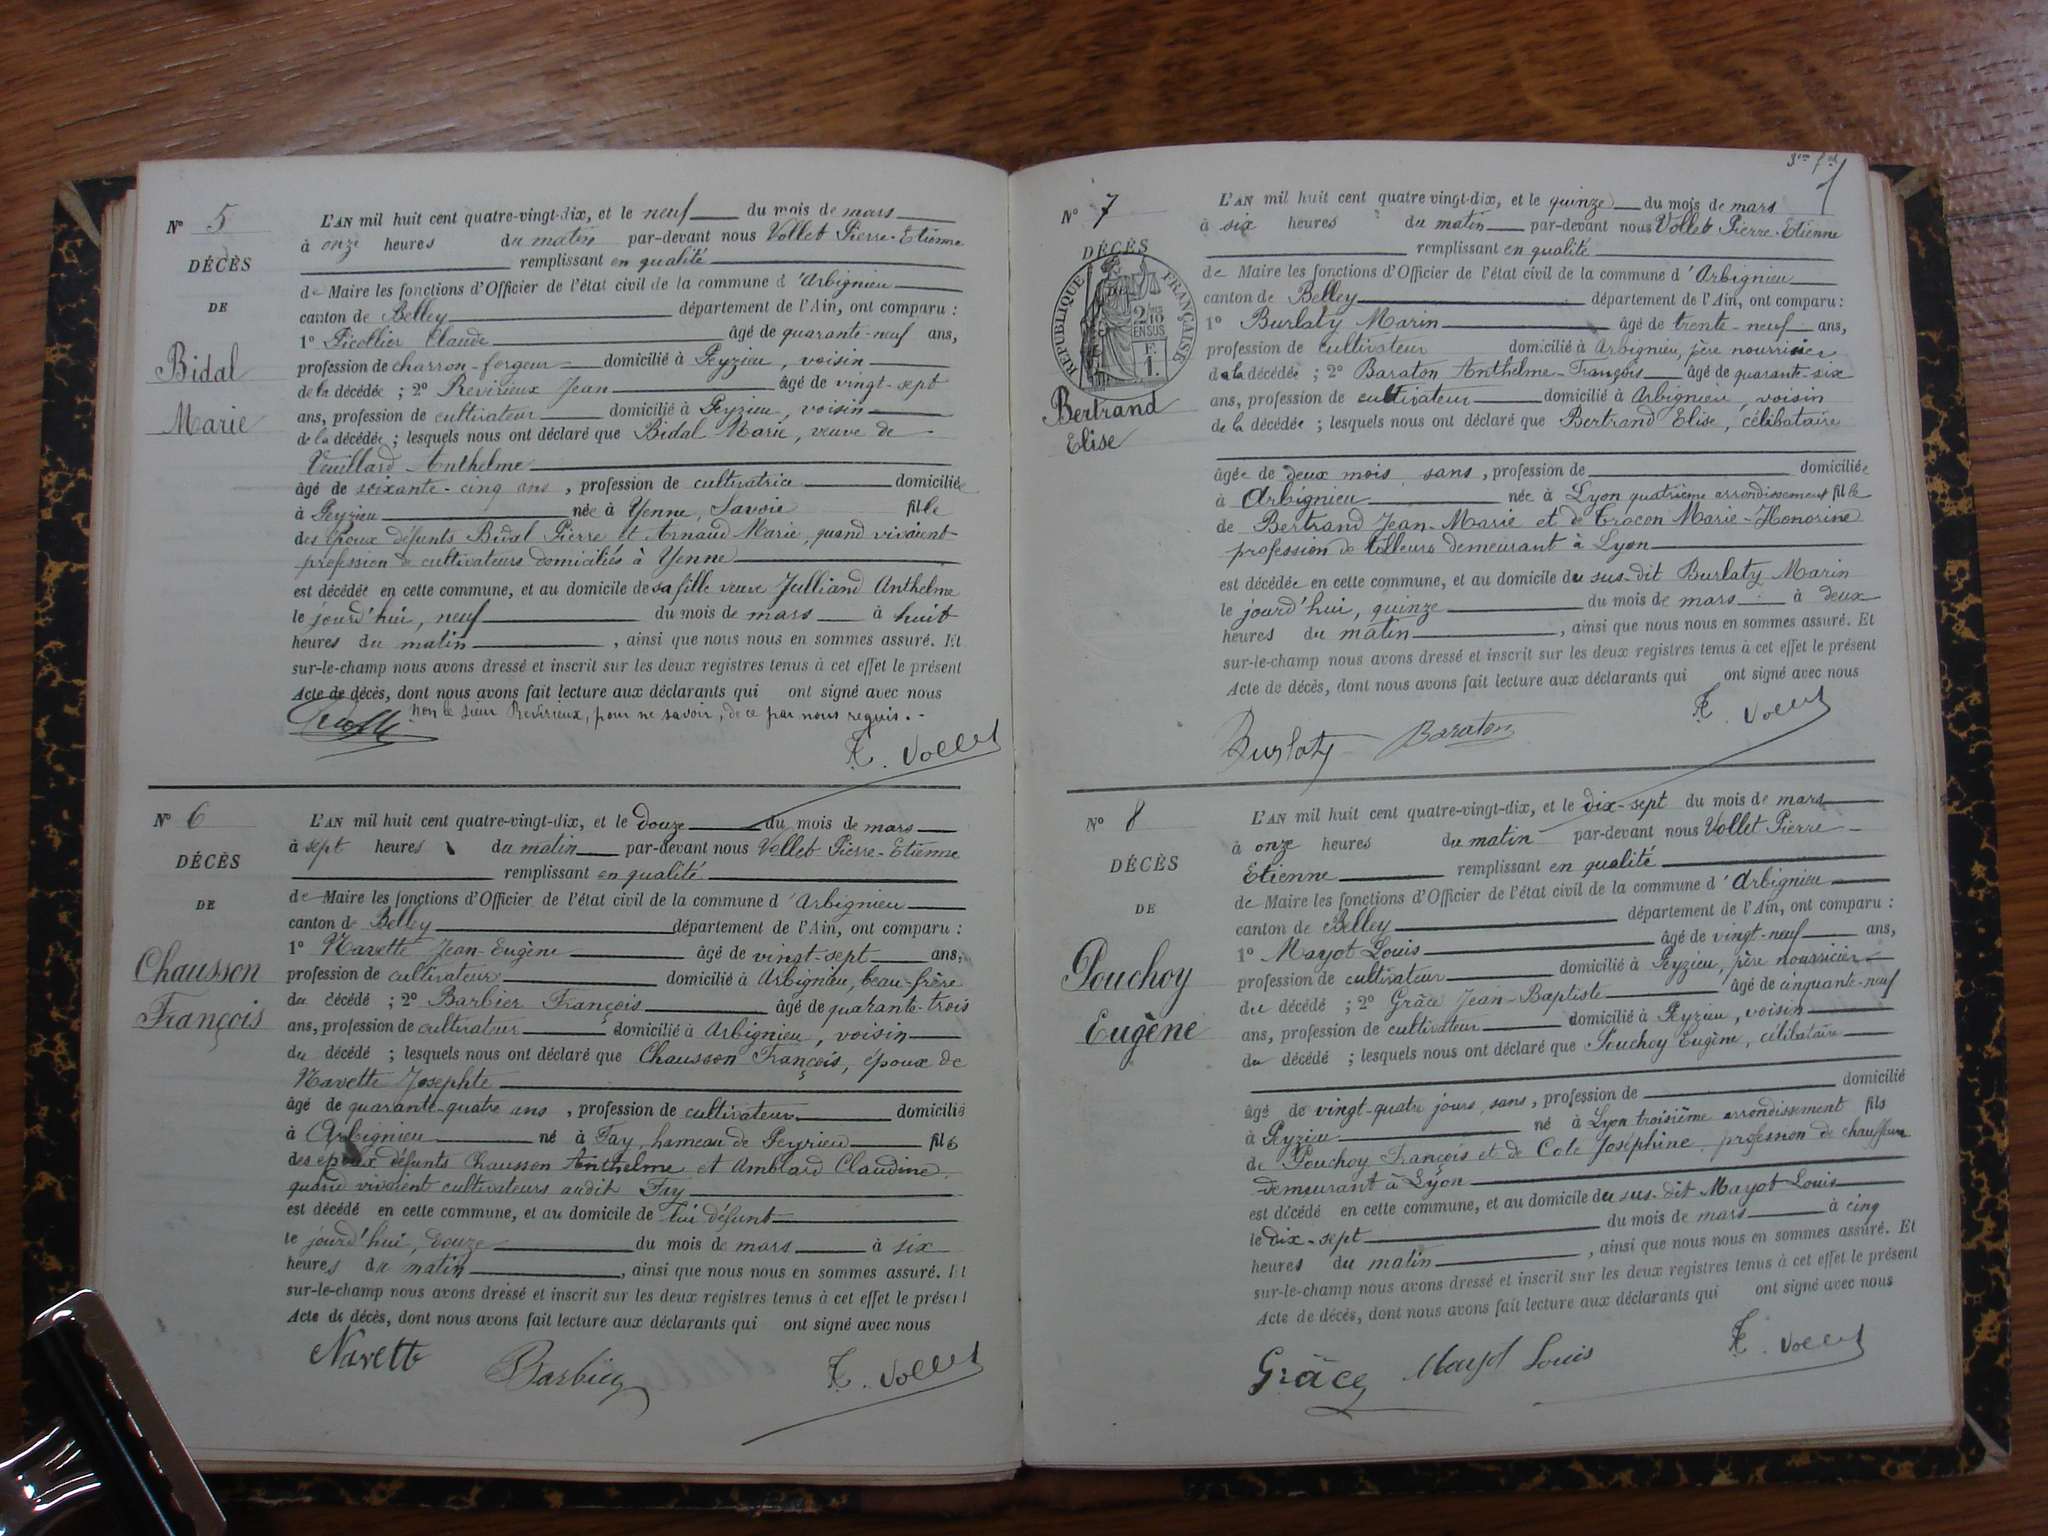 N° 5
DÉCÈS
DE
Bidal
Marie
L'AN mil huit cent quatre-vingt-dix, et le neuf du mois de mars
à onze heures du matin par-devant nous Vollet Pierre-Etienne
remplissant en qualité
de Maire les fonctions d'Officier de l'état civil de la commune d'Arbignieu
canton de Belley département de l'Ain, ont comparu :
1° Picollier Claude âgé de quarante-neuf ans,
profession de charron-forgeur domicilié à Peyzieu, voisin
de la décédée ; 2° Revirieux Jean âgé de vingt-sept
ans, profession de cultivateur domicilié à Peyzieu, voisin
de la décédée ; lesquels nous ont déclaré que Bidal Marie, veuve de
Veuillard Anthelme
âgé de soixante-cinq ans, profession de cultivatrice domiciliée
à Peyzieu née à Yenne, Savoie fille
des époux défunts Bidal Pierre et Arnaud Marie, quand vivaient
profession de cultivateurs domiciliés à Yenne
est décédée en cette commune, et au domicile de sa fille veuve Julliand Anthelme
le jourd'hui, neuf du mois de mars à huit
heures du matin, ainsi que nous nous en sommes assuré. Et
sur-le-champ nous avons dressé et inscrit sur les deux registres tenus à cet effet le présent
Acte de décès, dont nous avons fait lecture aux déclarants qui ont signé avec nous
non le sieur Revirieux, pour ne savoir, de ce par nous requis.
E. Vollet
N° 6
DÉCÈS
DE
Chausson
François
L'AN mil huit cent quatre-vingt-dix, et le douze du mois de mars
à sept heures du matin par-devant nous Vollet Pierre-Etienne
remplissant en qualité
de Maire les fonctions d'Officier de l'état civil de la commune d'Arbignieu
canton de Belley département de l'Ain, ont comparu :
1° Navette Jean-Eugène âgé de vingt-sept ans,
profession de cultivateur domicilié à Arbignieu, beau-frère
du décédé ; 2° Barbier François âgé de quarante-trois
ans, profession de cultivateur domicilié à Arbignieu, voisin
du décédé ; lesquels nous ont déclaré que Chausson François, époux de
Navette Josephte
âgé de quarante-quatre ans, profession de cultivateur domicilié
à Arbignieu né à Fay, hameau de Peyrieu fils
des époux défunts Chausson Anthelme et Amblard Claudine
quand vivaient cultivateurs audit Fay
est décédé en cette commune, et au domicile de lui défunt
le jourd'hui, douze du mois de mars à six
heures du matin, ainsi que nous nous en sommes assuré. Et
sur-le-champ nous avons dressé et inscrit sur les deux registres tenus à cet effet le présent
Acte de décès, dont nous avons fait lecture aux déclarants qui ont signé avec nous
Navette Barbier E. Vollet
N° 7
DÉCÈS
RÉPUBLIQUE FRANÇAISE
2/10
EN SUS
F.
1.
Bertrand
Elise
L'AN mil huit cent quatre-vingt-dix, et le quinze du mois de mars
à six heures du matin par-devant nous Vollet Pierre-Etienne
remplissant en qualité
de Maire les fonctions d'Officier de l'état civil de la commune d'Arbignieu
canton de Belley département de l'Ain, ont comparu :
1° Burlaty Marin âgé de trente-neuf ans,
profession de cultivateur domicilié à Arbignieu, père nourricier
de la décédée ; 2° Baraton Anthelme-François âgé de quarante-six
ans, profession de cultivateur domicilié à Arbignieu, voisin
de la décédée ; lesquels nous ont déclaré que Bertrand Elise, célibataire
âgée de deux mois, sans, profession de domiciliée
à Arbignieu née à Lyon quatrième arrondissement fille
de Bertrand Jean-Marie et de Marie-Honorine
profession de demeurant à Lyon
est décédée en cette commune, et au domicile du sus-dit Burlaty Marin
le jourd'hui, quinze du mois de mars à deux
heures du matin, ainsi que nous nous en sommes assuré. Et
sur-le-champ nous avons dressé et inscrit sur les deux registres tenus à cet effet le présent
Acte de décès, dont nous avons fait lecture aux déclarants qui ont signé avec nous
Burlaty Baraton E. Vollet
N° 8
DÉCÈS
DE
Pouchoy
Eugène
L'AN mil huit cent quatre-vingt-dix, et le dix-sept du mois de mars
à onze heures du matin par-devant nous Vollet Pierre
Etienne remplissant en qualité
de Maire les fonctions d'Officier de l'état civil de la commune d'Arbignieu
canton de Belley département de l'Ain, ont comparu :
1° Mayot Louis âgé de vingt-neuf ans,
profession de cultivateur domicilié à Peyzieu, père nourricier
du décédé ; 2° Grâce Jean-Baptiste âgé de cinquante-neuf
ans, profession de cultivateur domicilié à Peyzieu, voisin
du décédé ; lesquels nous ont déclaré que Pouchoy Eugène, célibataire
âgé de vingt-quatre jours, sans, profession de domicilié
à Peyzieu né à Lyon troisième arrondissement fils
de Pouchoy François et de Cote Joséphine, profession de chauffeur
demeurant à Lyon
est décédé en cette commune, et au domicile du sus-dit Mayot Louis
le dix-sept du mois de mars à cinq
heures du matin, ainsi que nous nous en sommes assuré. Et
sur-le-champ nous avons dressé et inscrit sur les deux registres tenus à cet effet le présent
Acte de décès, dont nous avons fait lecture aux déclarants qui ont signé avec nous
Grâce Mayot Louis E. Vollet